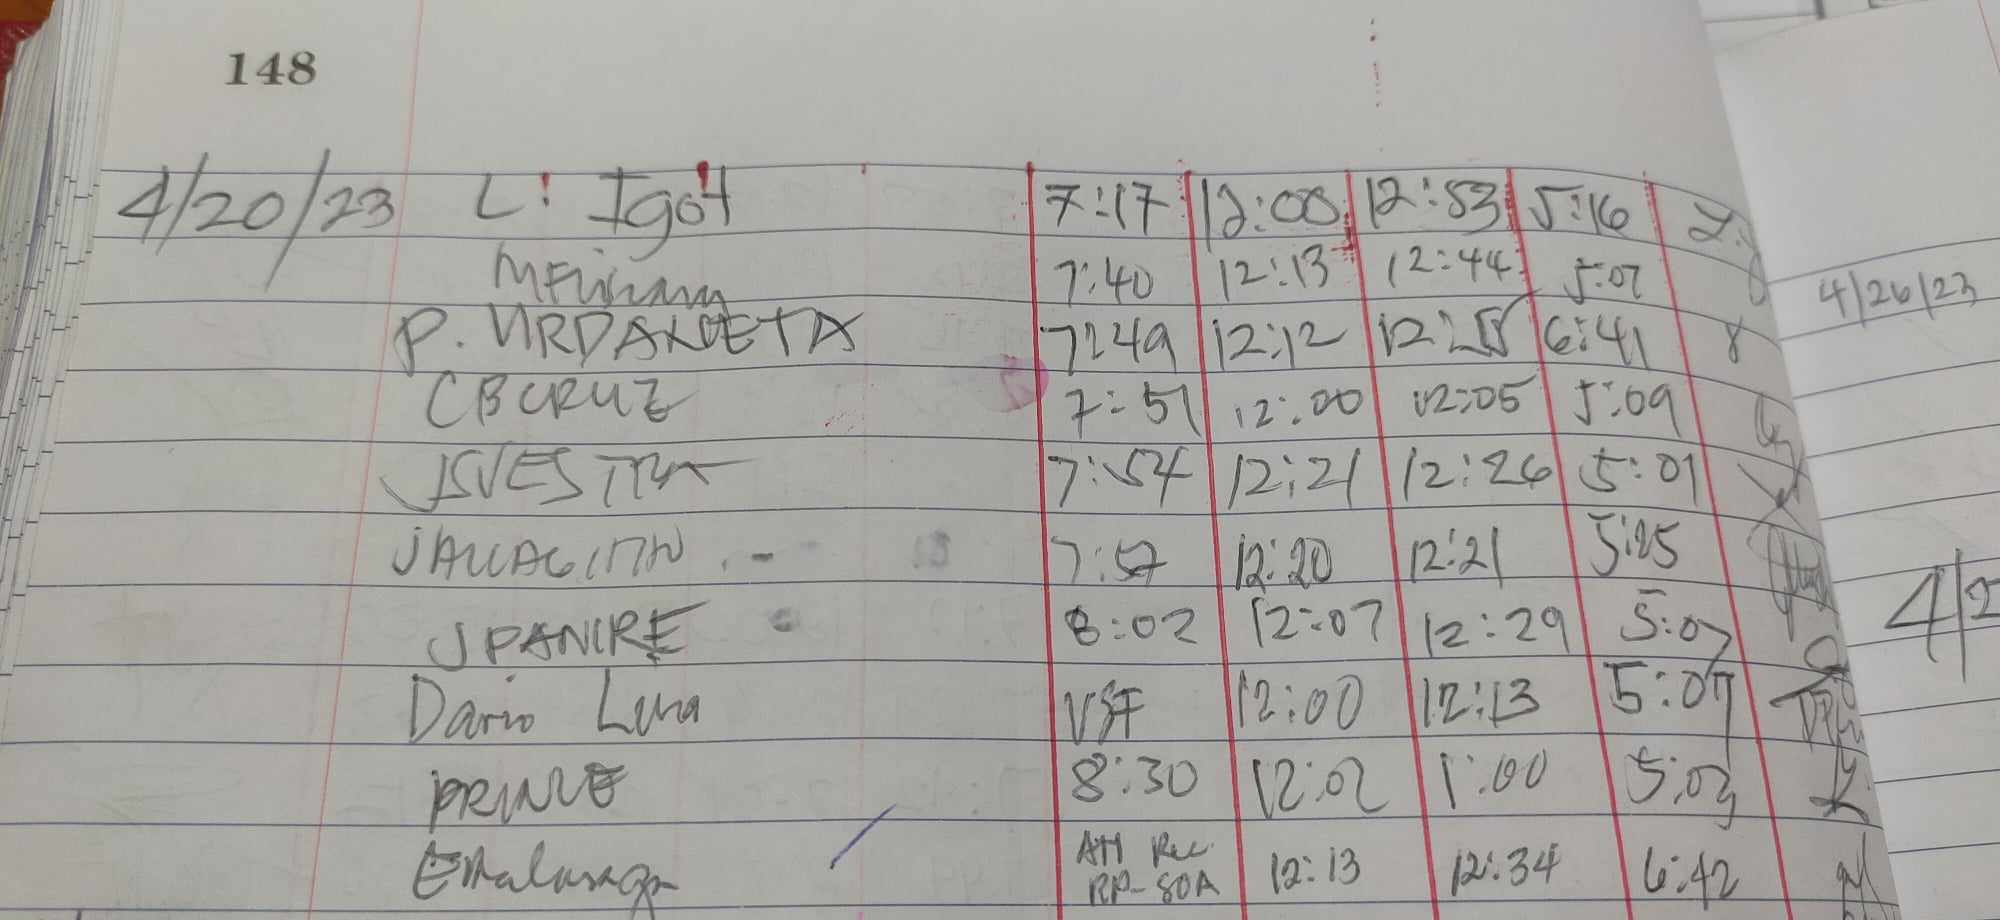 148
4/20/23 L. Igot 7:17 12:08 12:53 5:16
7:40 12:13 12:44 5:07
4/26/23
P. URDANETA 7:49 12:12 6:41
CBCRUZ 7:51 12:00 12:05 5:09
JSVESTRA 7:54 12:21 12:26 5:01
7:57 12:20 12:21 5:25
JPANIRE 8:02 12:07 12:29 5:07
4/2
Dario Luna VSF 12:00 12:13 5:07
PRINCE 8:30 12:02 1:00 5:03
12:13 12:34 6:42
RP-SOA